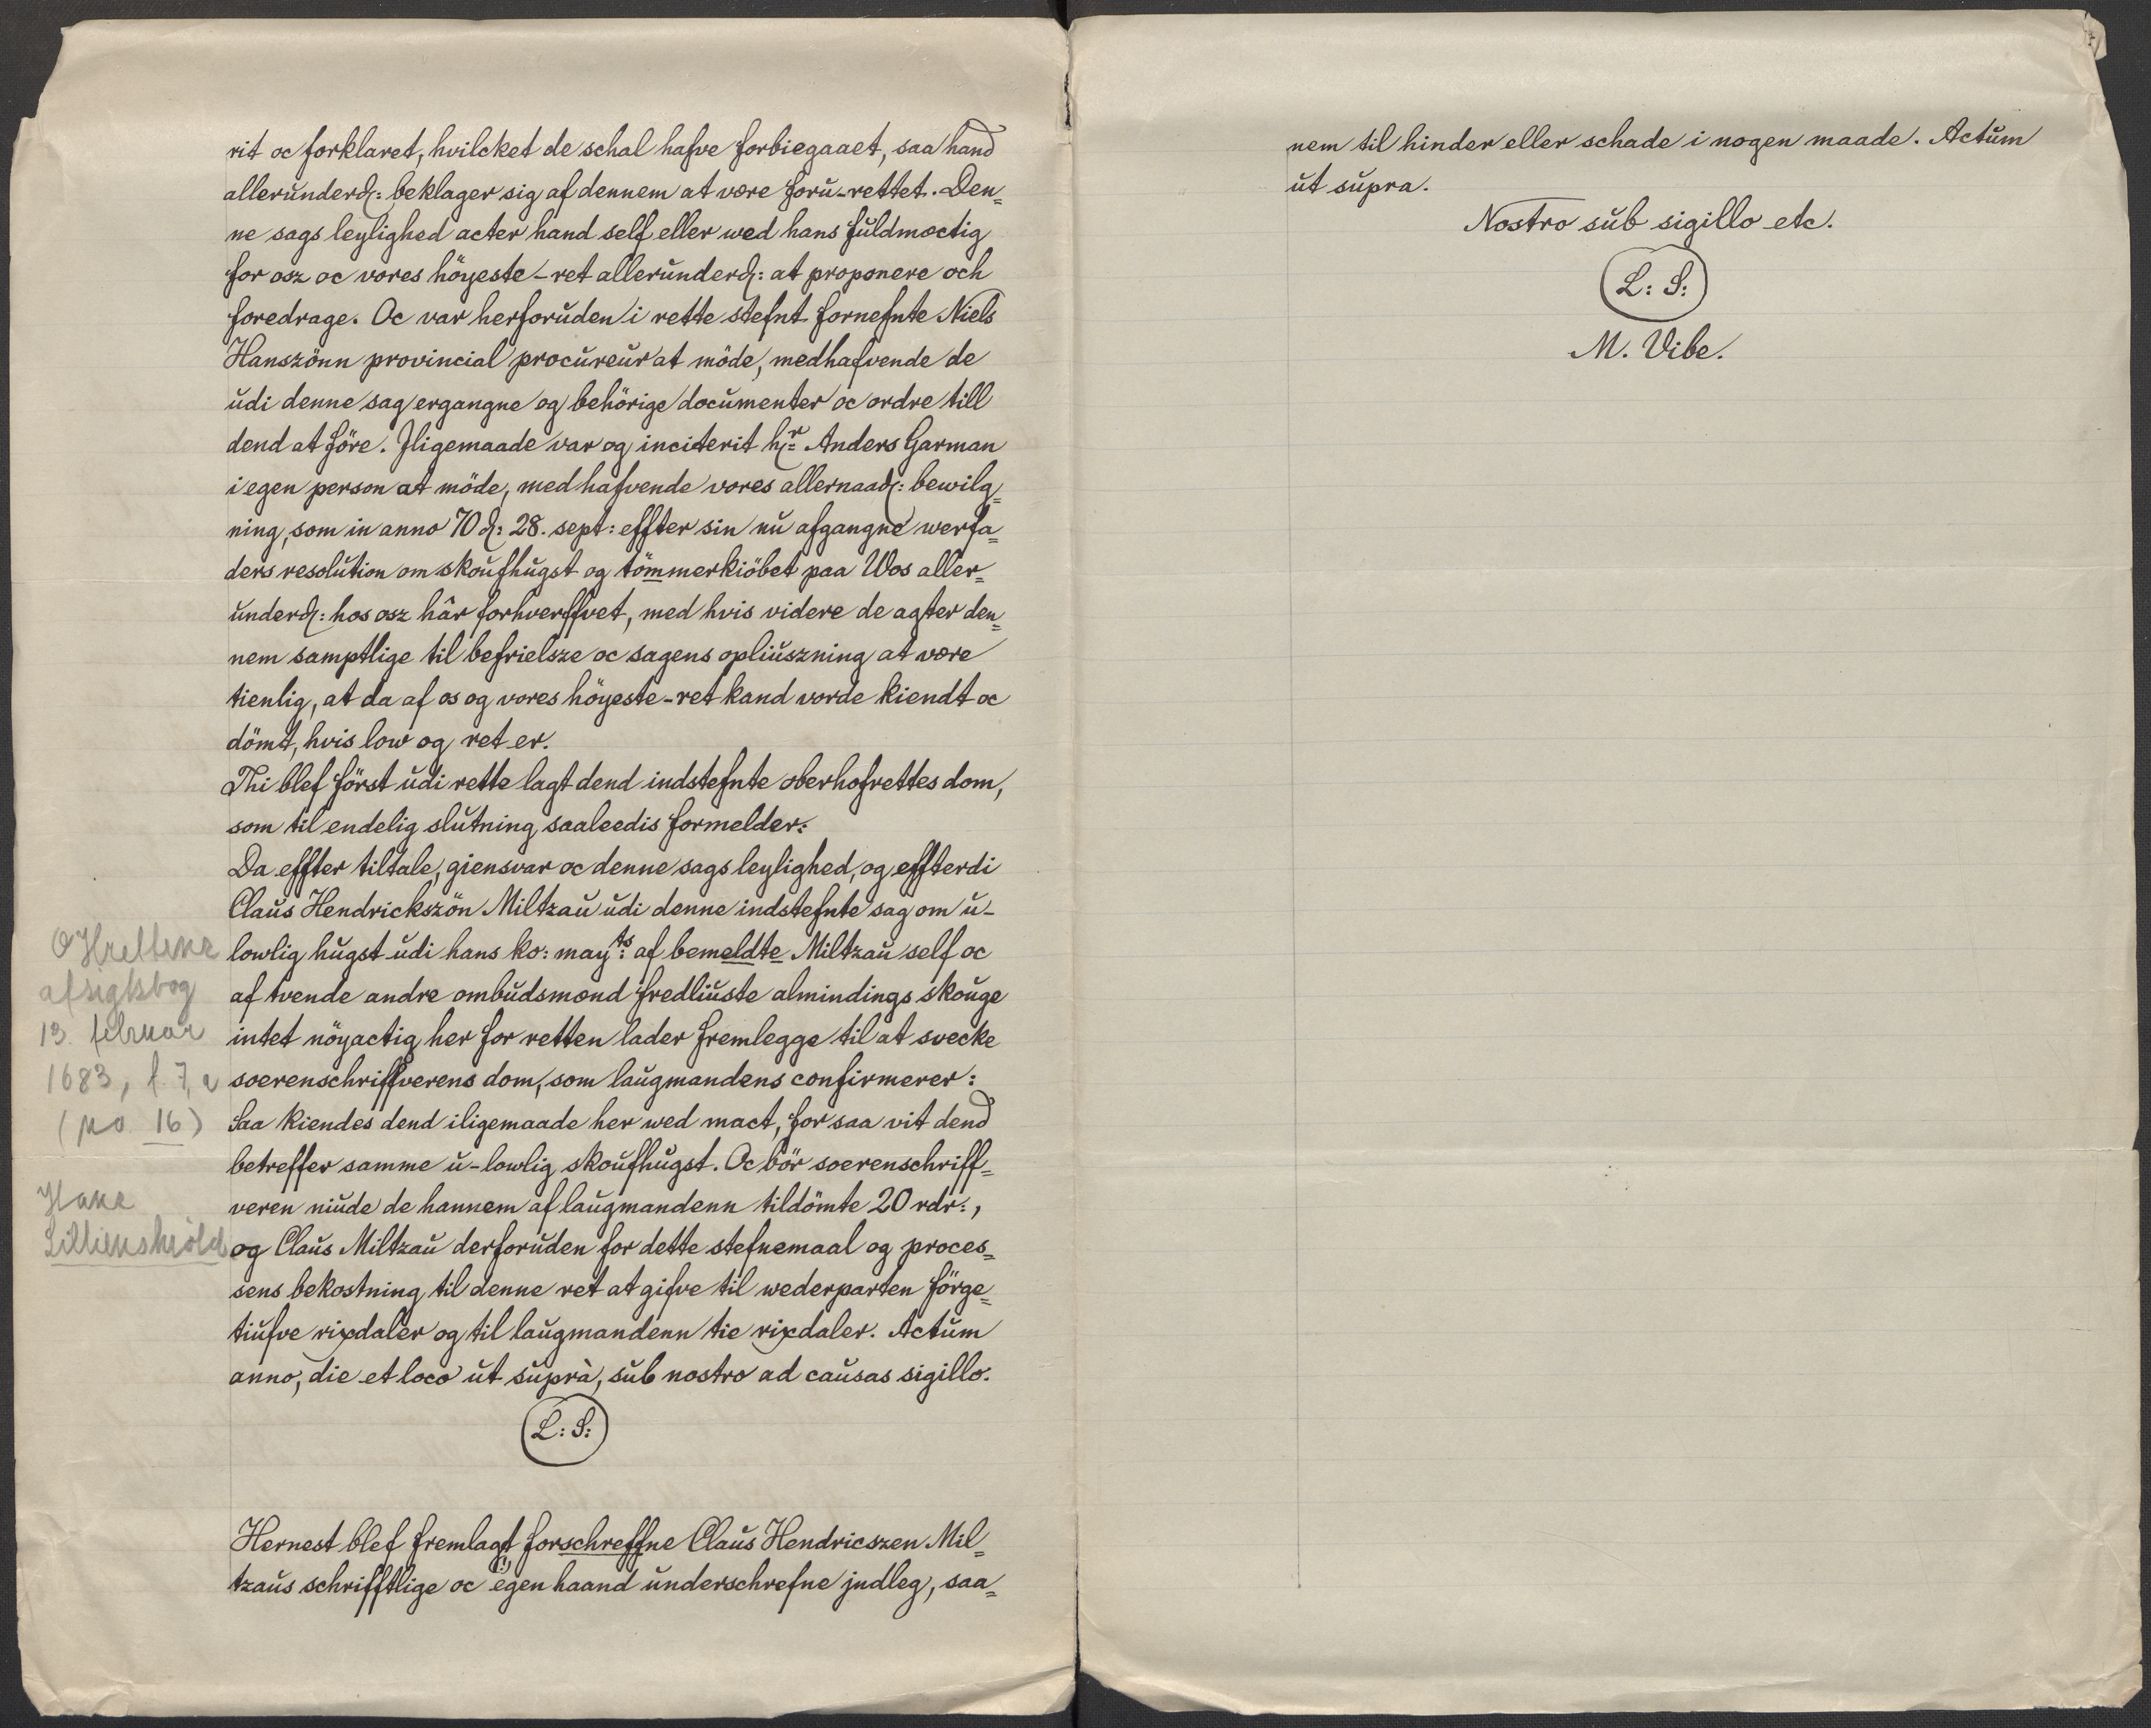 rit oc forklaret, hvilcket de schal hafve forbiegaaet, saa hand
allerunderd: beklager sig af dennem at være foru-rettet. Den=
ne sags leylighed acter hand self eller wed hans fuldmæctig
for osz oc vores höyeste-ret allerunderd: at proponere och
foredrage. Oc var herforuden i rette stefnt fornefnte Niels
Hanszönn provincial procureur at möde, medhafvende de
udi denne sag ergangne og behörige documenter oc ordre till
dend at före. Iligemaade var og inciterit hr= Anders Garman
i egen person at möde, med hafvende vores allernaad: bewilg=
ning, som in anno 70 d: 28. sept: effter sin nu afgangne werfa=
ders resolution om skoufhugst og tömmerkiöbet paa Wos aller=
underd: hos osz hâr forhverffvet, med hvis videre de agter den=
nem samptlige til befrielsze oc sagens opliuszning at være
tienlig, at da af os og vores höyeste-ret kand vorde kiendt oc
dömt, hvis low og ret er.
Thi blef först udi rette lagt dend indstefnte oberhofrettes dom,
som til endelig slutning saaleedis formelder:
Da effter tiltale, giensvar oc denne sags leylighed, og effterdi
Claus Hendrickszön Miltzau udi denne indstefnte sag om u-
lowlig hugst udi hans ko: mayts: af bemeldte Miltzau self oc
af tvende andre ombudsmænd fredliuste almindings skouge
intet nöyactig her for retten lader fremlegge til at svecke
soerenschriffverens dom, som laugmandens confirmerer:
Saa kiendes dend iligemaade her wed mact, for saa vit dend
betreffer samme u-lowlig skoufhugst. Oc bör soerenschriff=
veren niude de hannem af laugmandenn tildömte 20 rdr:,
og Claus Miltzau derforuden for dette stefnemaal og proces=
sens bekostning til denne ret at gifve til wederparten förge=
tiufve rixdaler og til laugmandenn tie rixdaler. Actum
anno, die et loco ut suprà, sub nostro ad causas sigillo.
L: S:
Hernest blef fremlagt forschreffne Claus Hendricszen Mil=
tzaus schrifftlige oc egen haand underschrefne jndleg, saa=
OHrettens
afsigtsbog
13. februar
1683, f. 7, a
(no. 16)
Hans
Lillienskiöld
nem til hinder eller schade i nogen maade. Actum
ut supra.
Nostro sub sigillo etc.
L: S:
M. Vibe.